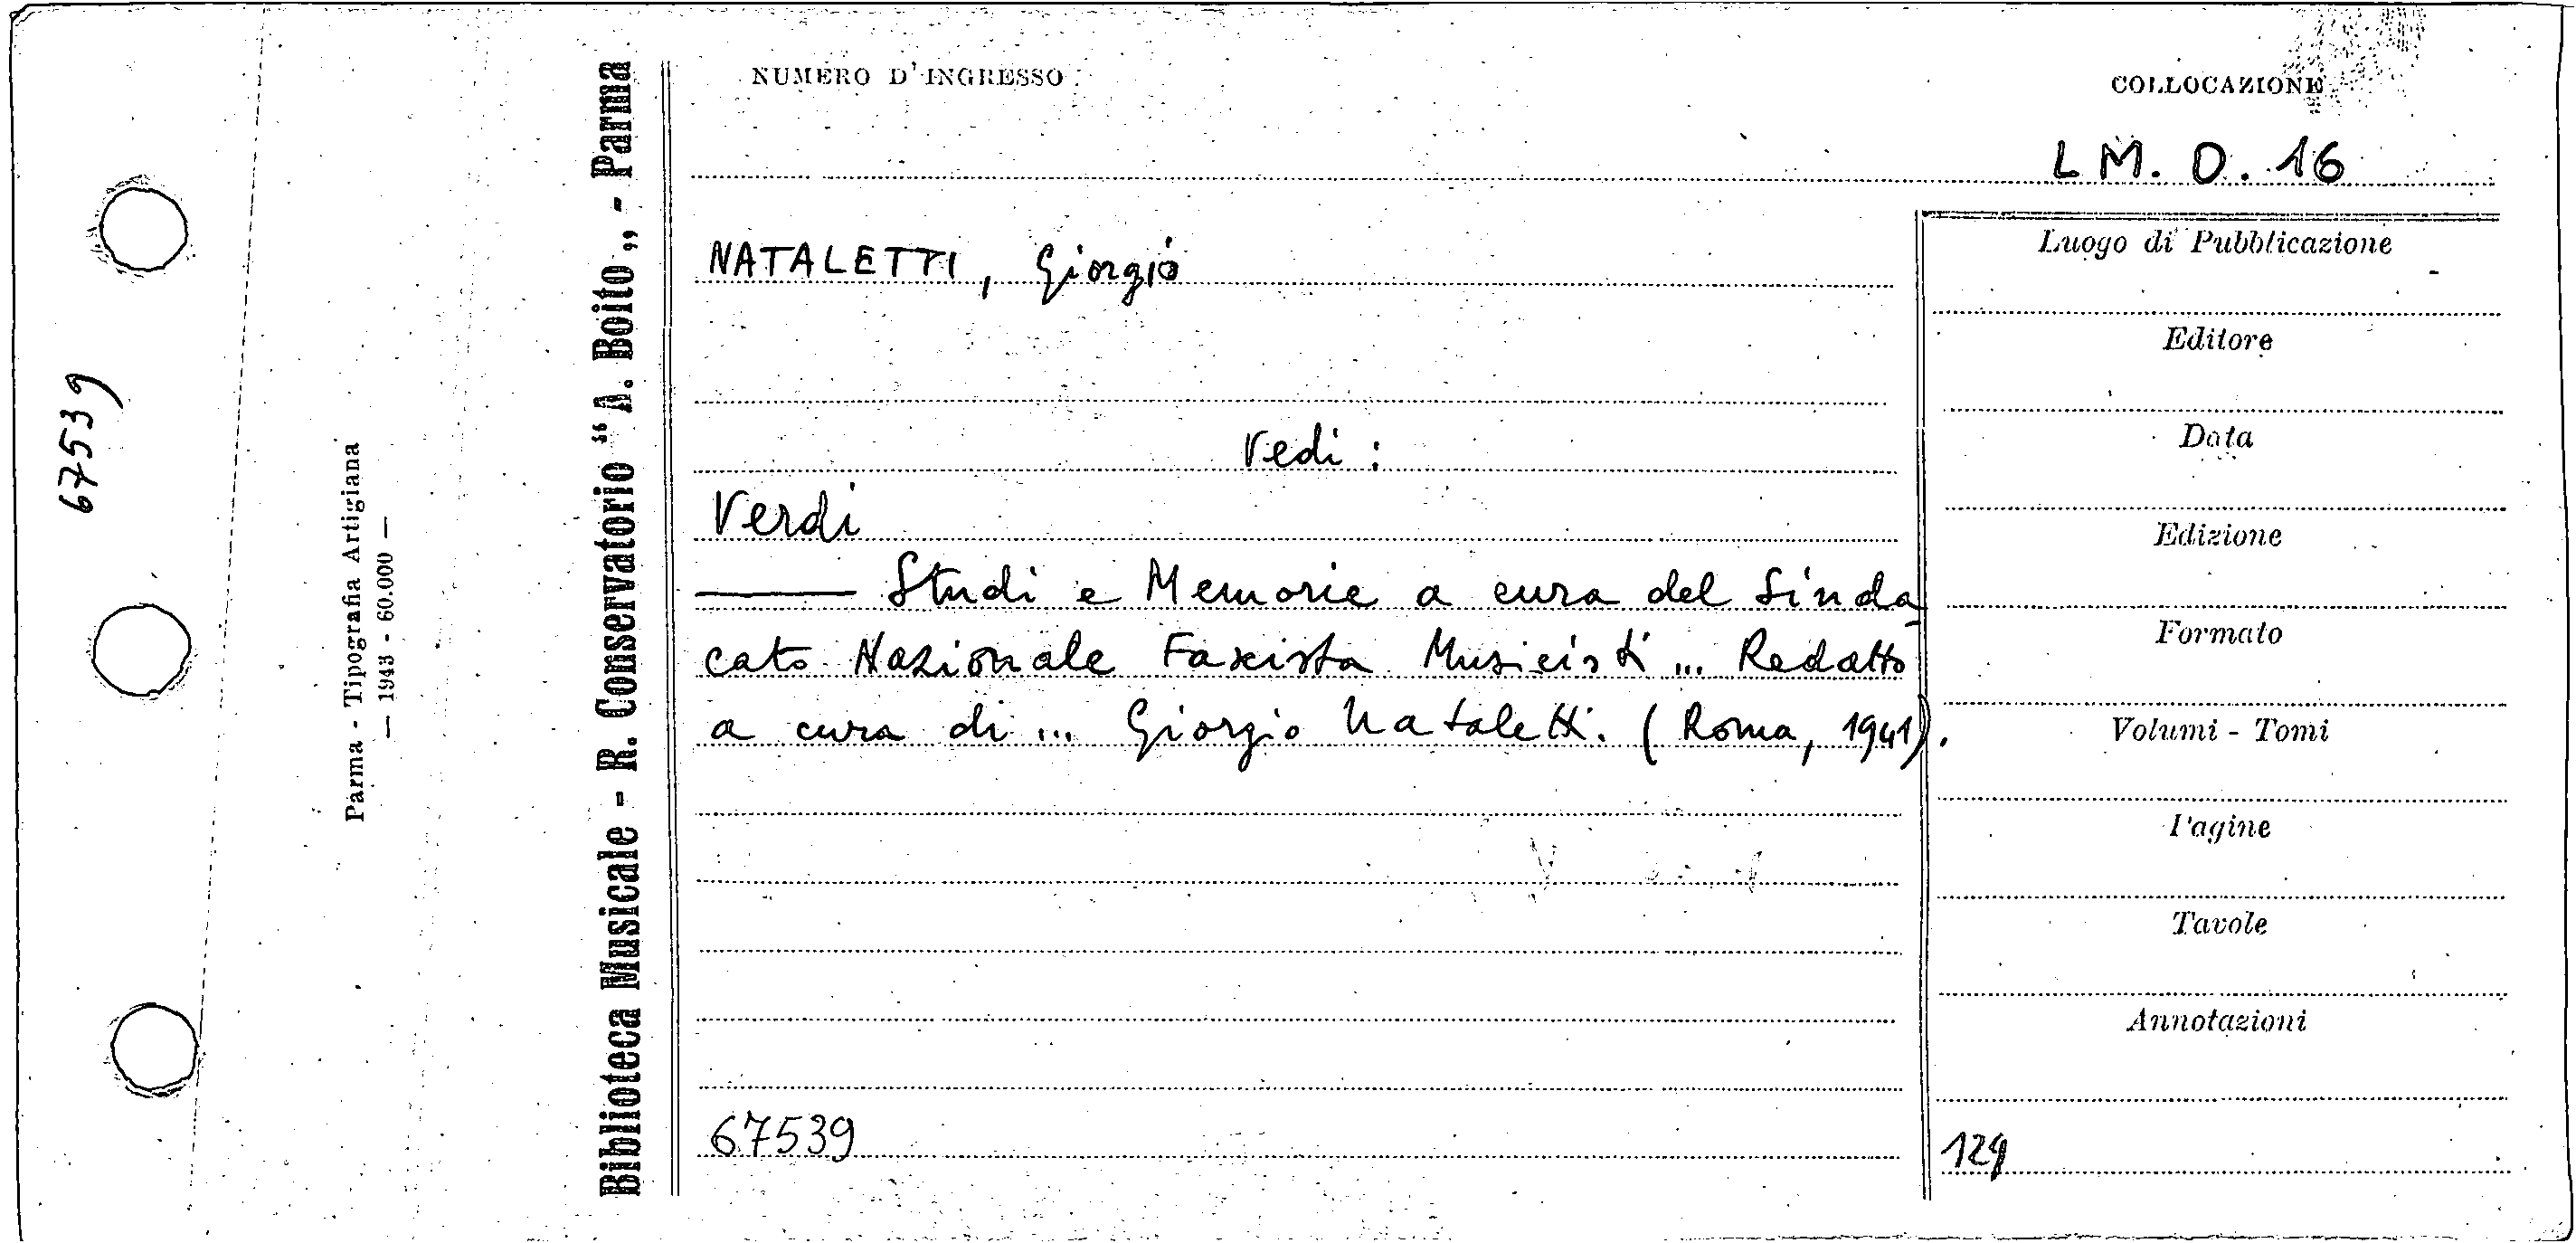 67539
Parma - Tipografia Artigiana
— 1943 - 60.000 —
Biblioteca Musicale - R. Conservatorio “A. Boito„ - Parma
NUMERO D'INGRESSO
COLLOCAZIONE
LM. D. 16
NATALETTI, Giorgio
Vedi:
Verdi
——— Studi e Memorie a cura del Sinda-
cato Nazionale Fascista Musicisti ... Redatto
a cura di ... Giorgio Nataletti. (Roma, 1941).
67539
Luogo di Pubblicazione
Editore
Data
Edizione
Formato
Volumi - Tomi
Pagine
Tavole
Annotazioni